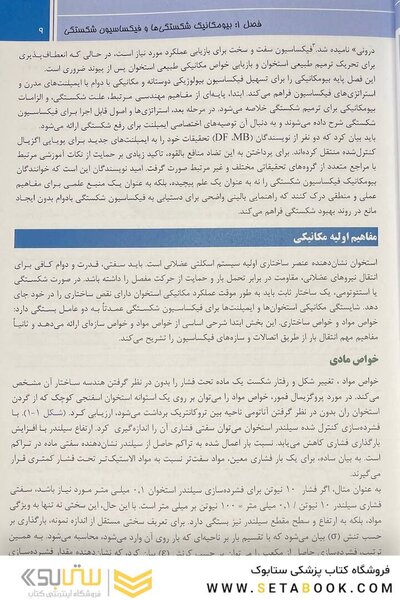 فصل ۱: بیومکانیک شکستگی‌ها و فیکساسیون شکستگی ۹
درونی» نامیده شد. فیکساسیون سفت و سخت برای بازیابی عملکرد مورد نیاز است، در حالی که انعطاف‌پذیری
برای تحریک ترمیم طبیعی استخوان و بازیابی خواص مکانیکی طبیعی استخوان پس از پیوند ضروری است.
این فصل پایه بیومکانیکی را برای تسهیل فیکساسیون بیولوژیکی دوستانه و مکانیکی با دوام با ایمپلنت‌های مدرن و
استراتژی‌های فیکساسیون فراهم می‌کند. ابتدا، پایه‌ای از مفاهیم مهندسی مرتبط، علت شکستگی، و الزامات
بیومکانیکی برای ترمیم شکستگی خلاصه می‌شود. در مرحله بعد، استراتژی‌ها و اصول قابل اجرا برای فیکساسیون
شکستگی شرح داده می‌شوند و به دنبال آن توصیه‌های اختصاصی ایمپلنت برای رفع شکستگی ارائه می‌شود.
باید بیان کرد که دو نفر از نویسندگان (DF ,MB) تحقیقات خود را به ایمپلنت‌های جدید برای پویایی اگزیال
کنترل‌شده منتقل کرده‌اند. برای پرداختن به این تضاد منافع بالقوه، تاکید زیادی بر حمایت از نکات آموزشی مرتبط
با مراجع متعدد از گروه‌های تحقیقاتی مختلف و غیر مرتبط صورت گرفت. امید نویسندگان این است که خوانندگان
بیومکانیک فیکساسیون شکستگی را نه به عنوان یک علم پیچیده، بلکه به عنوان یک منبع علمی برای مفاهیم
عملی و منطقی درک کنند که راهنمایی بالینی واضحی برای دستیابی به فیکساسیون بادوام بدون ایجاد
مانع در روند بهبود شکستگی فراهم می‌کند.
مفاهیم اولیه مکانیکی
استخوان نشان‌دهنده عنصر ساختاری اولیه سیستم اسکلتی عضلانی است. باید سفتی، قدرت و دوام کافی برای
انتقال نیروهای عضلانی، مقاومت در برابر تحمل بار و حمایت از حرکت مفصل را داشته باشد. در صورت شکستگی
یا استئوتومی، یک ساختار ثابت باید به طور موقت عملکرد مکانیکی استخوان دارای نقص ساختاری را در خود جای
دهد. شایستگی مکانیکی استخوان‌ها و ایمپلنت‌ها برای فیکساسیون شکستگی عمدتاً به دو عامل بستگی دارد:
خواص مواد و خواص ساختاری. این بخش ابتدا شرحی اساسی از خواص مواد و خواص سازه‌ای ارائه می‌دهد و ثانیاً
مفاهیم مهم انتقال بار از طریق اتصالات و سازه‌های فیکساسیون را تشریح می‌کند.
خواص مادی
خواص مواد، تغییر شکل و رفتار شکست یک ماده تحت فشار را بدون در نظر گرفتن هندسه ساختار آن مشخص
می‌کند. در مورد پروگزیمال فمور، خواص مواد را می‌توان بر روی یک استوانه استخوان اسفنجی کوچک که از گردن
استخوان ران بدون در نظر گرفتن آناتومی ناحیه بین تروکانتریک برداشت می‌شود، ارزیابی کرد (شکل ۱-۱). با
فشرده‌سازی کنترل شده سیلندر استخوان می‌توان سفتی فشاری آن را اندازه‌گیری کرد. ارتفاع سیلندر با افزایش
بارگذاری فشاری کاهش می‌یابد. نسبت بار اعمال شده به تراکم حاصل از سیلندر نشان‌دهنده سفتی ماده در تراکم
است. به بیان ساده، برای یک بار فشاری معین، مواد سفت‌تر نسبت به مواد الاستیک‌تر تحت فشار کمتری قرار
می‌گیرند.
به عنوان مثال، اگر فشار ۱۰ نیوتن برای فشرده‌سازی سیلندر استخوان ۰٫۱ میلی متر مورد نیاز باشد، سفتی
فشاری سیلندر ۱۰ نیوتن / ۰٫۱ میلی متر = ۱۰۰ نیوتن بر میلی متر است. با این حال، این سختی نه تنها به ویژگی
مواد، بلکه به ارتفاع و سطح مقطع سیلندر نیز بستگی دارد. برای تعریف سختی مستقل از اندازه نمونه، بارگذاری بر
حسب تنش (σ) بیان می‌شود که با تقسیم بار بر ناحیه‌ای که بار روی آن وارد می‌شود، محاسبه می‌شود. به همین
ترتیب، فشرده‌سازی حاصل از مکعب را می‌توان بر حسب کرنش (ε) بیان کرد، که نشان‌دهنده مقدار فشرده‌سازی
ستابوک
فروشگاه اینترنتی کتاب
فروشگاه کتاب پزشکی ستابوک
WWW.SETABOOK.COM